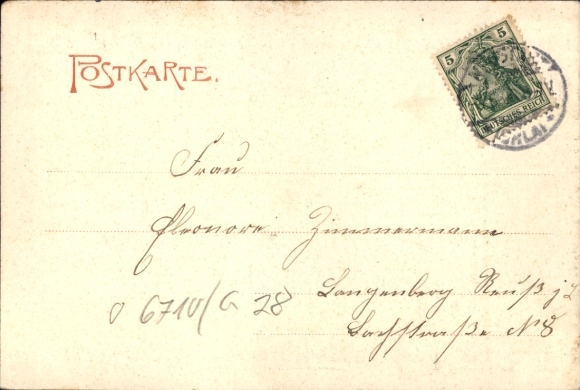 POSTKARTE.
5 5
DEUTSCHES REICH
Frau
Eleonore Zimmermann
Langenberg Reuß j L
Bachstraße N 8
6710/G 28